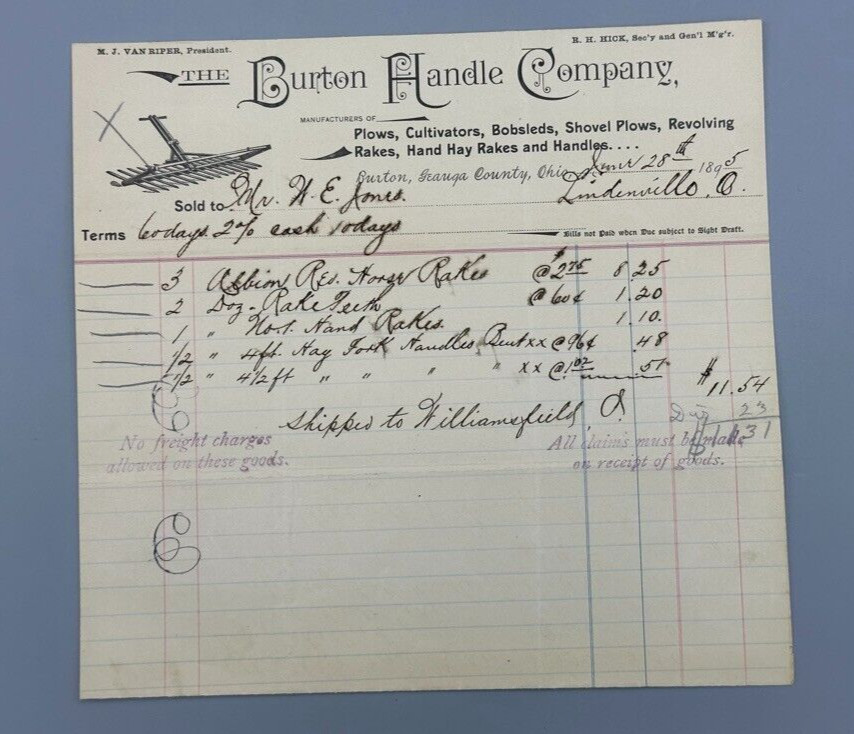 M. J. VAN RIPER, President.
R. H. HICK, Sec'y and Gen'l M'g'r.
THE Burton Handle Company,
MANUFACTURERS OF
Plows, Cultivators, Bobsleds, Shovel Plows, Revolving
Rakes, Hand Hay Rakes and Handles....
Burton, Geauga County, Ohio, June 28th 1895
Sold to Mr. W. E. Jones.
Lindenville, O.
Terms 60 days 2% cash 10 days
Bills not Paid when Due subject to Sight Draft.
3 Albion Rev. Horse Rakes @ $2.75 8.25
2 Doz. Rake Teeth @ 60¢ 1.20
1 " No. 1. Hand Rakes. 1.10.
1/2 " 4ft. Hay Fork Handles Bent xx @ 96¢ .48
1/2 " 4 1/2 ft " " " " xx @ 1.02 .51
$11.54
Shipped to Williamsfield, O.
23
$11.31
No freight charges
allowed on these goods.
All claims must be made
on receipt of goods.